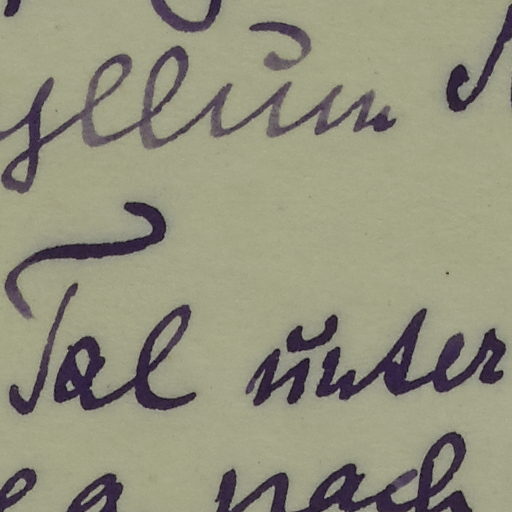 yllum
Tal unter
nach